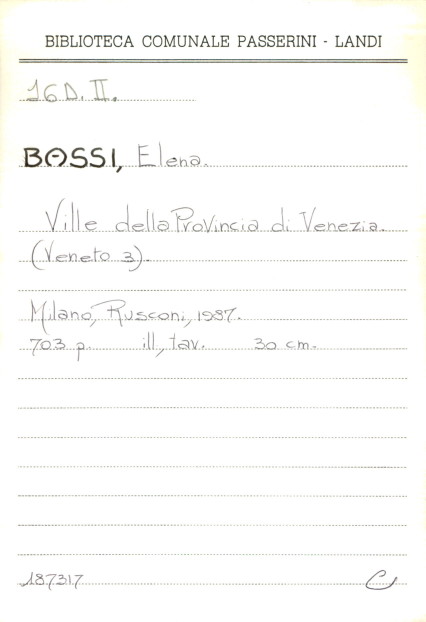 BIBLIOTECA COMUNALE PASSERINI - LANDI
16 D. II.
BOSSI, Elena.
Ville della Provincia di Venezia.
(Veneto 3).
Milano, Rusconi, 1987.
703 p. ill., tav. 30 cm.
187317 C